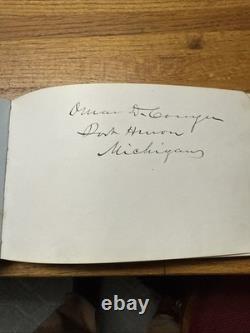 Omar D. Conger
Port Huron
Michigan